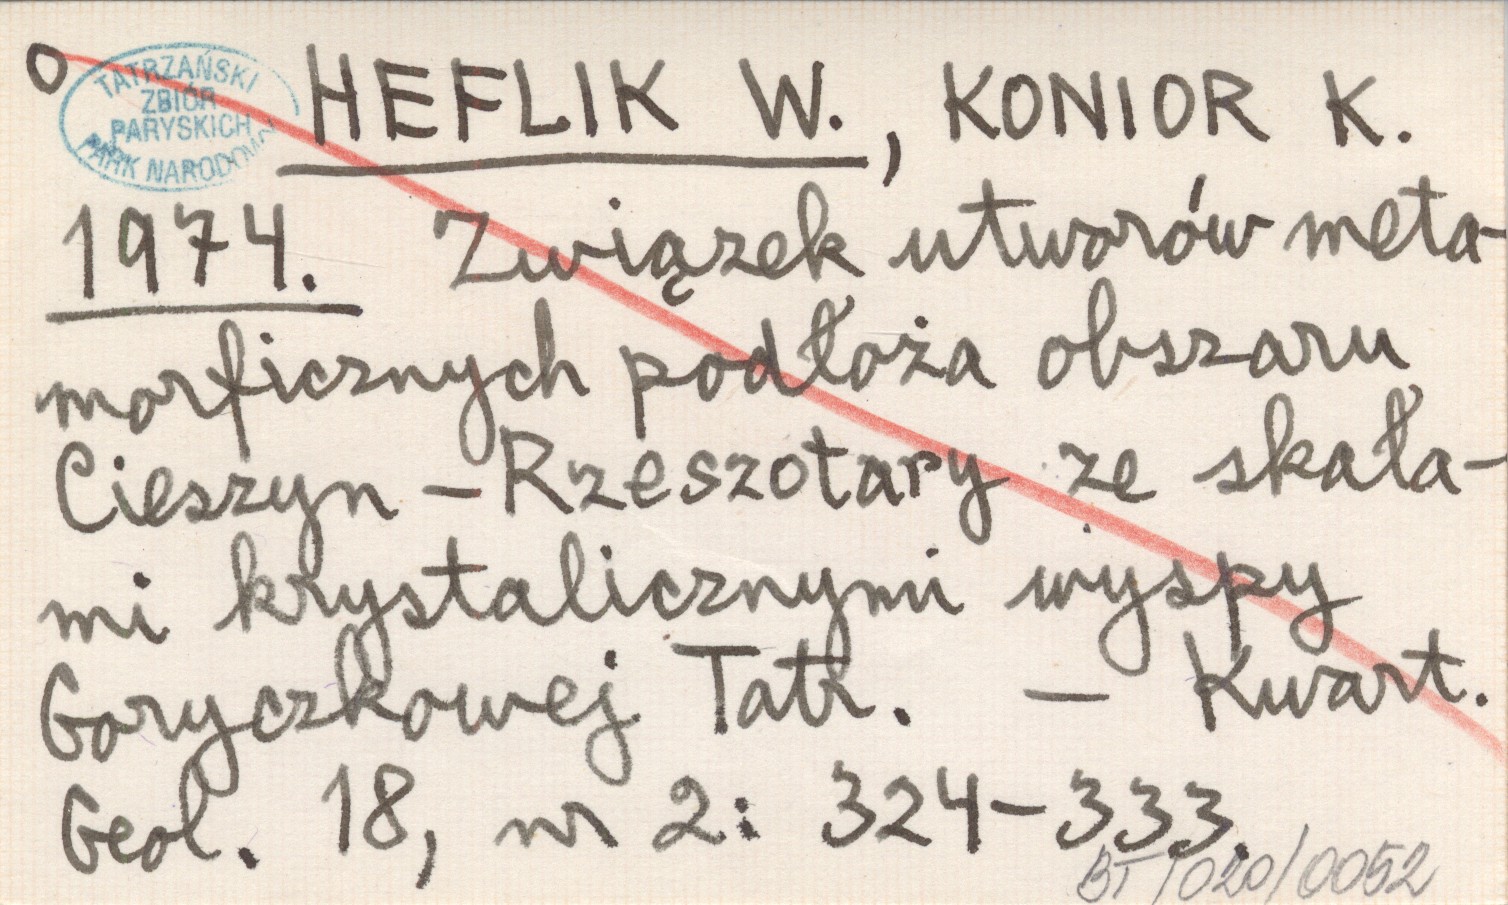 TATRZAŃSKI
ZBIÓR
PARYSKICH
PARK NARODOWY
HEFLIK W., KONIOR K.
1974. Związek utworów meta-
morficznych podłoża obszaru
Cieszyn – Rzeszotary ze skała-
mi krystalicznymi wyspy
Goryczkowej Tatr. – Kwart.
Geol. 18, nr 2: 324–333.
BT/020/0052